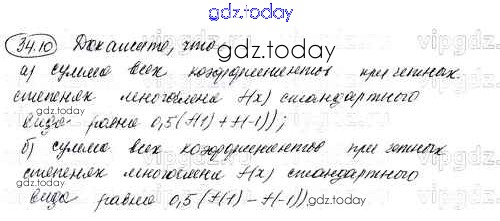 gdz.today
34.10 Доказать, что
gdz.today
а) сумма всех коэффициентов при четных
степенях многочлена f(x) стандартного
gdz.today
вида равна 0,5(f(1) + f(-1));
б) сумма всех коэффициентов при четных
степенях многочлена f(x) стандартного
gdz.today
вида равна 0,5(f(1) - f(-1))